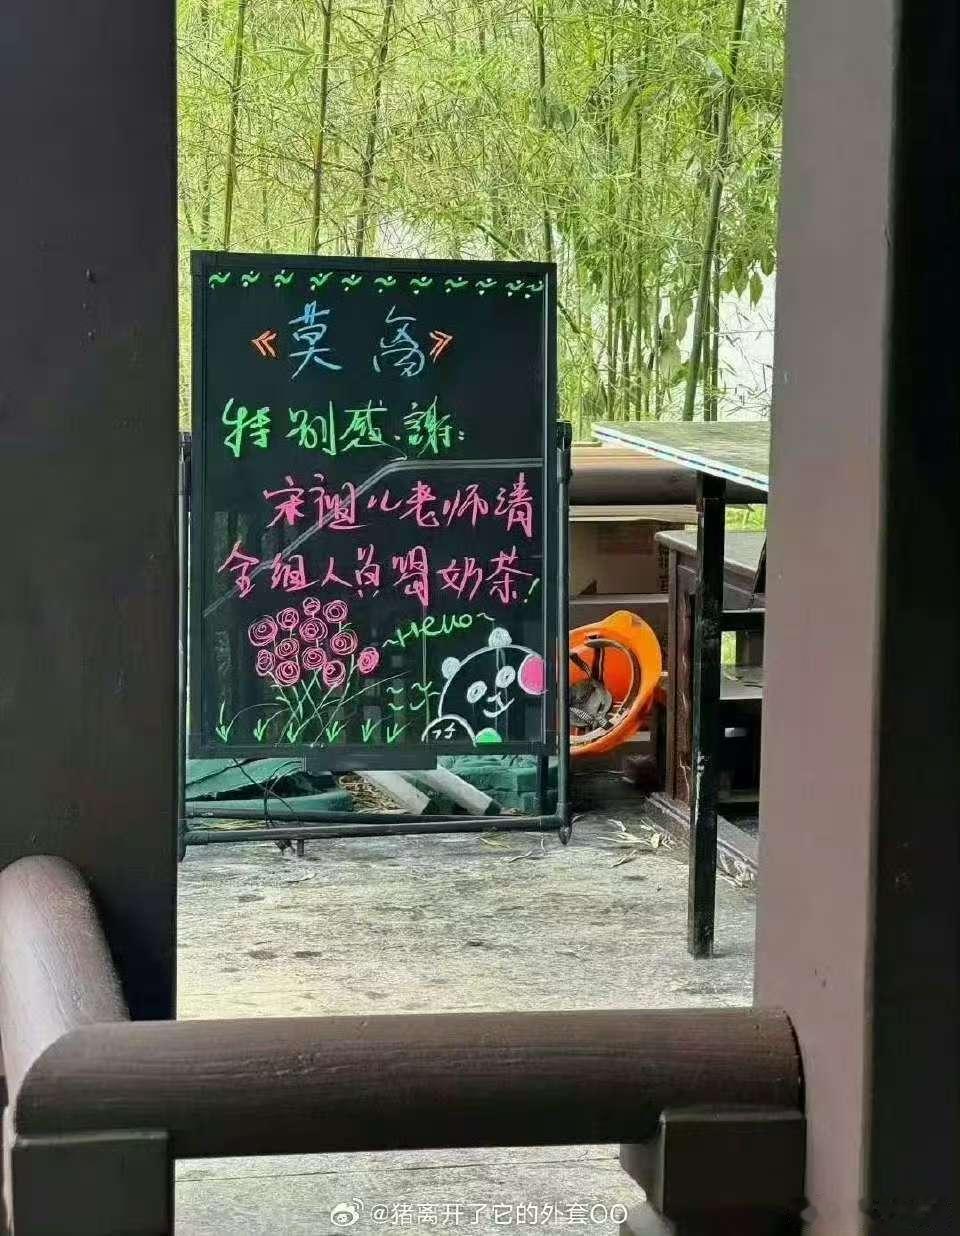 《莫离》
特别感謝:
宋祖儿老师请
全组人员喝奶茶!
~Hello~
@猪离开了它的外套OO